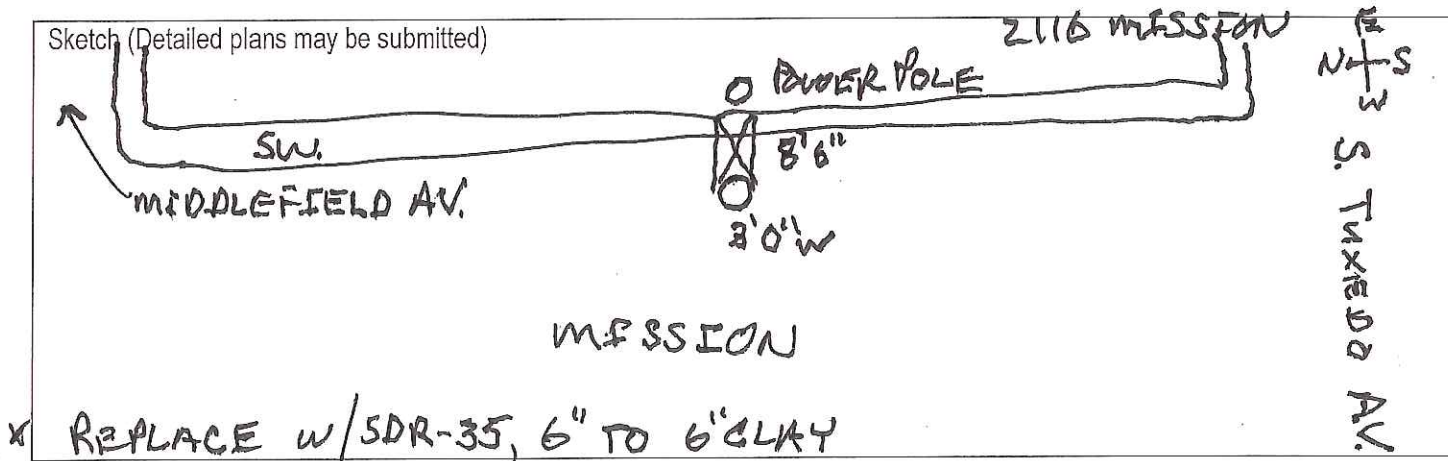 Sketch (Detailed plans may be submitted)
2116 MISSION
E
N S
W
POWER POLE
SW.
8'6"
MIDDLEFIELD AV.
3'0"W
S. TUXEDO AV.
MISSION
* REPLACE W/SDR-35, 6" TO 6" CLAY